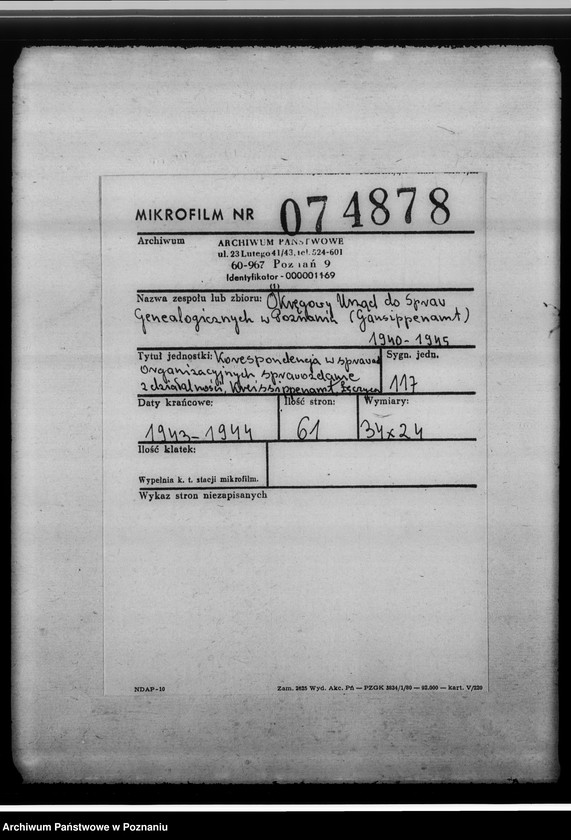 MIKROFILM NR 074878
Archiwum
ARCHIWUM PAŃSTWOWE
ul. 23 Lutego 41/43, tel. 524-601
60-967 Poznań 9
Identyfikator - 000001169
Nazwa zespołu lub zbioru: Okręgowy Urząd do Spraw
Genealogicznych w Poznaniu (Gausippenamt)
1940-1945
Tytuł jednostki: Korespondencja w sprawach
organizacyjnych sprawozdanie
z działalności, Kreissippenamt, Łęczyca
Sygn. jedn.
117
Daty krańcowe:
1943-1944
Ilość stron:
61
Wymiary:
34x24
Ilość klatek:
Wypełnia k. t. stacji mikrofilm.
Wykaz stron niezapisanych
NDAP-10
Zam. 2625 Wyd. Akc. Pń — PZGK 1034/1/80 — 92.000 — kart. V/220
Archiwum Państwowe w Poznaniu